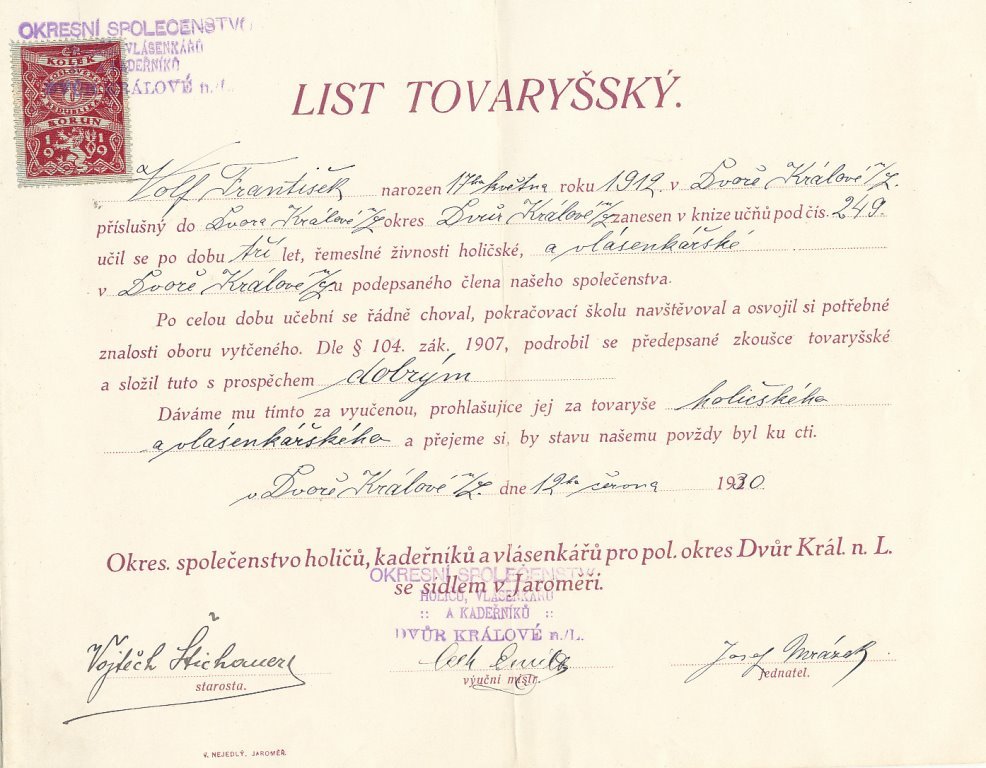 OKRESNÍ SPOLEČENSTVO
VLÁSENKÁŘŮ
KADEŘNÍKŮ
DVŮR KRÁLOVÉ n./L.
ČR
KOLEK
1
KORUN
1919
LIST TOVARYŠSKÝ.
Volf František narozen 17ho května roku 1912 v Dvoře Králové n/L.
příslušný do Dvora Králové n/L okres Dvůr Králové n/L zanesen v knize učňů pod čís. 249.
učil se po dobu tří let, řemeslné živnosti holičské, a vlásenkářské
v Dvoře Králové n/L u podepsaného člena našeho společenstva.
Po celou dobu učební se řádně choval, pokračovací školu navštěvoval a osvojil si potřebné
znalosti oboru vytčeného. Dle § 104. zák. 1907, podrobil se předepsané zkoušce tovaryšské
a složil tuto s prospěchem dobrým
Dáváme mu tímto za vyučenou, prohlašujíce jej za tovaryše holičského
a vlásenkářského a přejeme si, by stavu našemu povždy byl ku cti.
v Dvoře Králové n/L. dne 12ho června 1930.
Okres. společenstvo holičů, kadeřníků a vlásenkářů pro pol. okres Dvůr Král. n. L.
se sídlem v Jaroměři.
OKRESNÍ SPOLEČENSTVO
HOLIČŮ, VLÁSENKÁŘŮ
:: A KADEŘNÍKŮ ::
DVŮR KRÁLOVÉ n./L.
Vojtěch Josef Mrázek
starosta. výuční mistr. jednatel.
V. NEJEDLÝ, JAROMĚŘ.